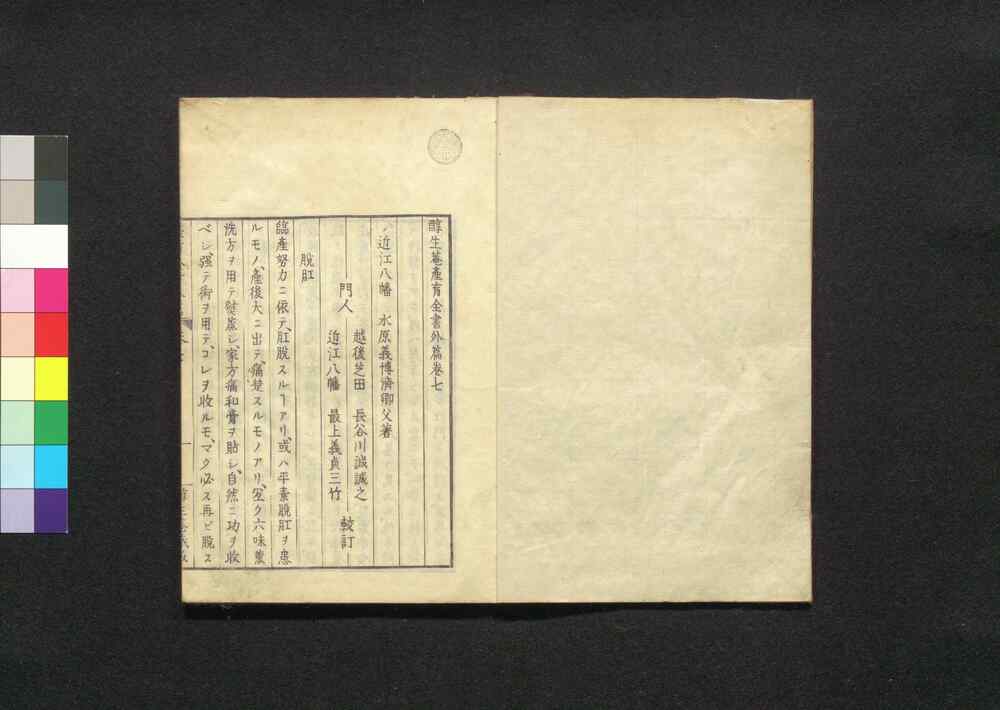 醇生菴產育全書外篇卷七
近江八幡　水原義博濟卿父著
門人
越後芝田　長谷川誠誠之
近江八幡　最上義貞三竹
較訂
脫肛
臨產努力ニ依テ、肛脫スルヿアリ、或ハ平素脫肛ヲ患
ルモノ、產後大ニ出テ、痛楚スルモノアリ、宜ク六味薰
洗方ヲ用テ熨蒸シ、家方痛和膏ヲ貼シ、自然ニ功ヲ收
ベシ、强テ術ヲ用テ、コレヲ收ルモ、マタ必ス再ビ脫ス